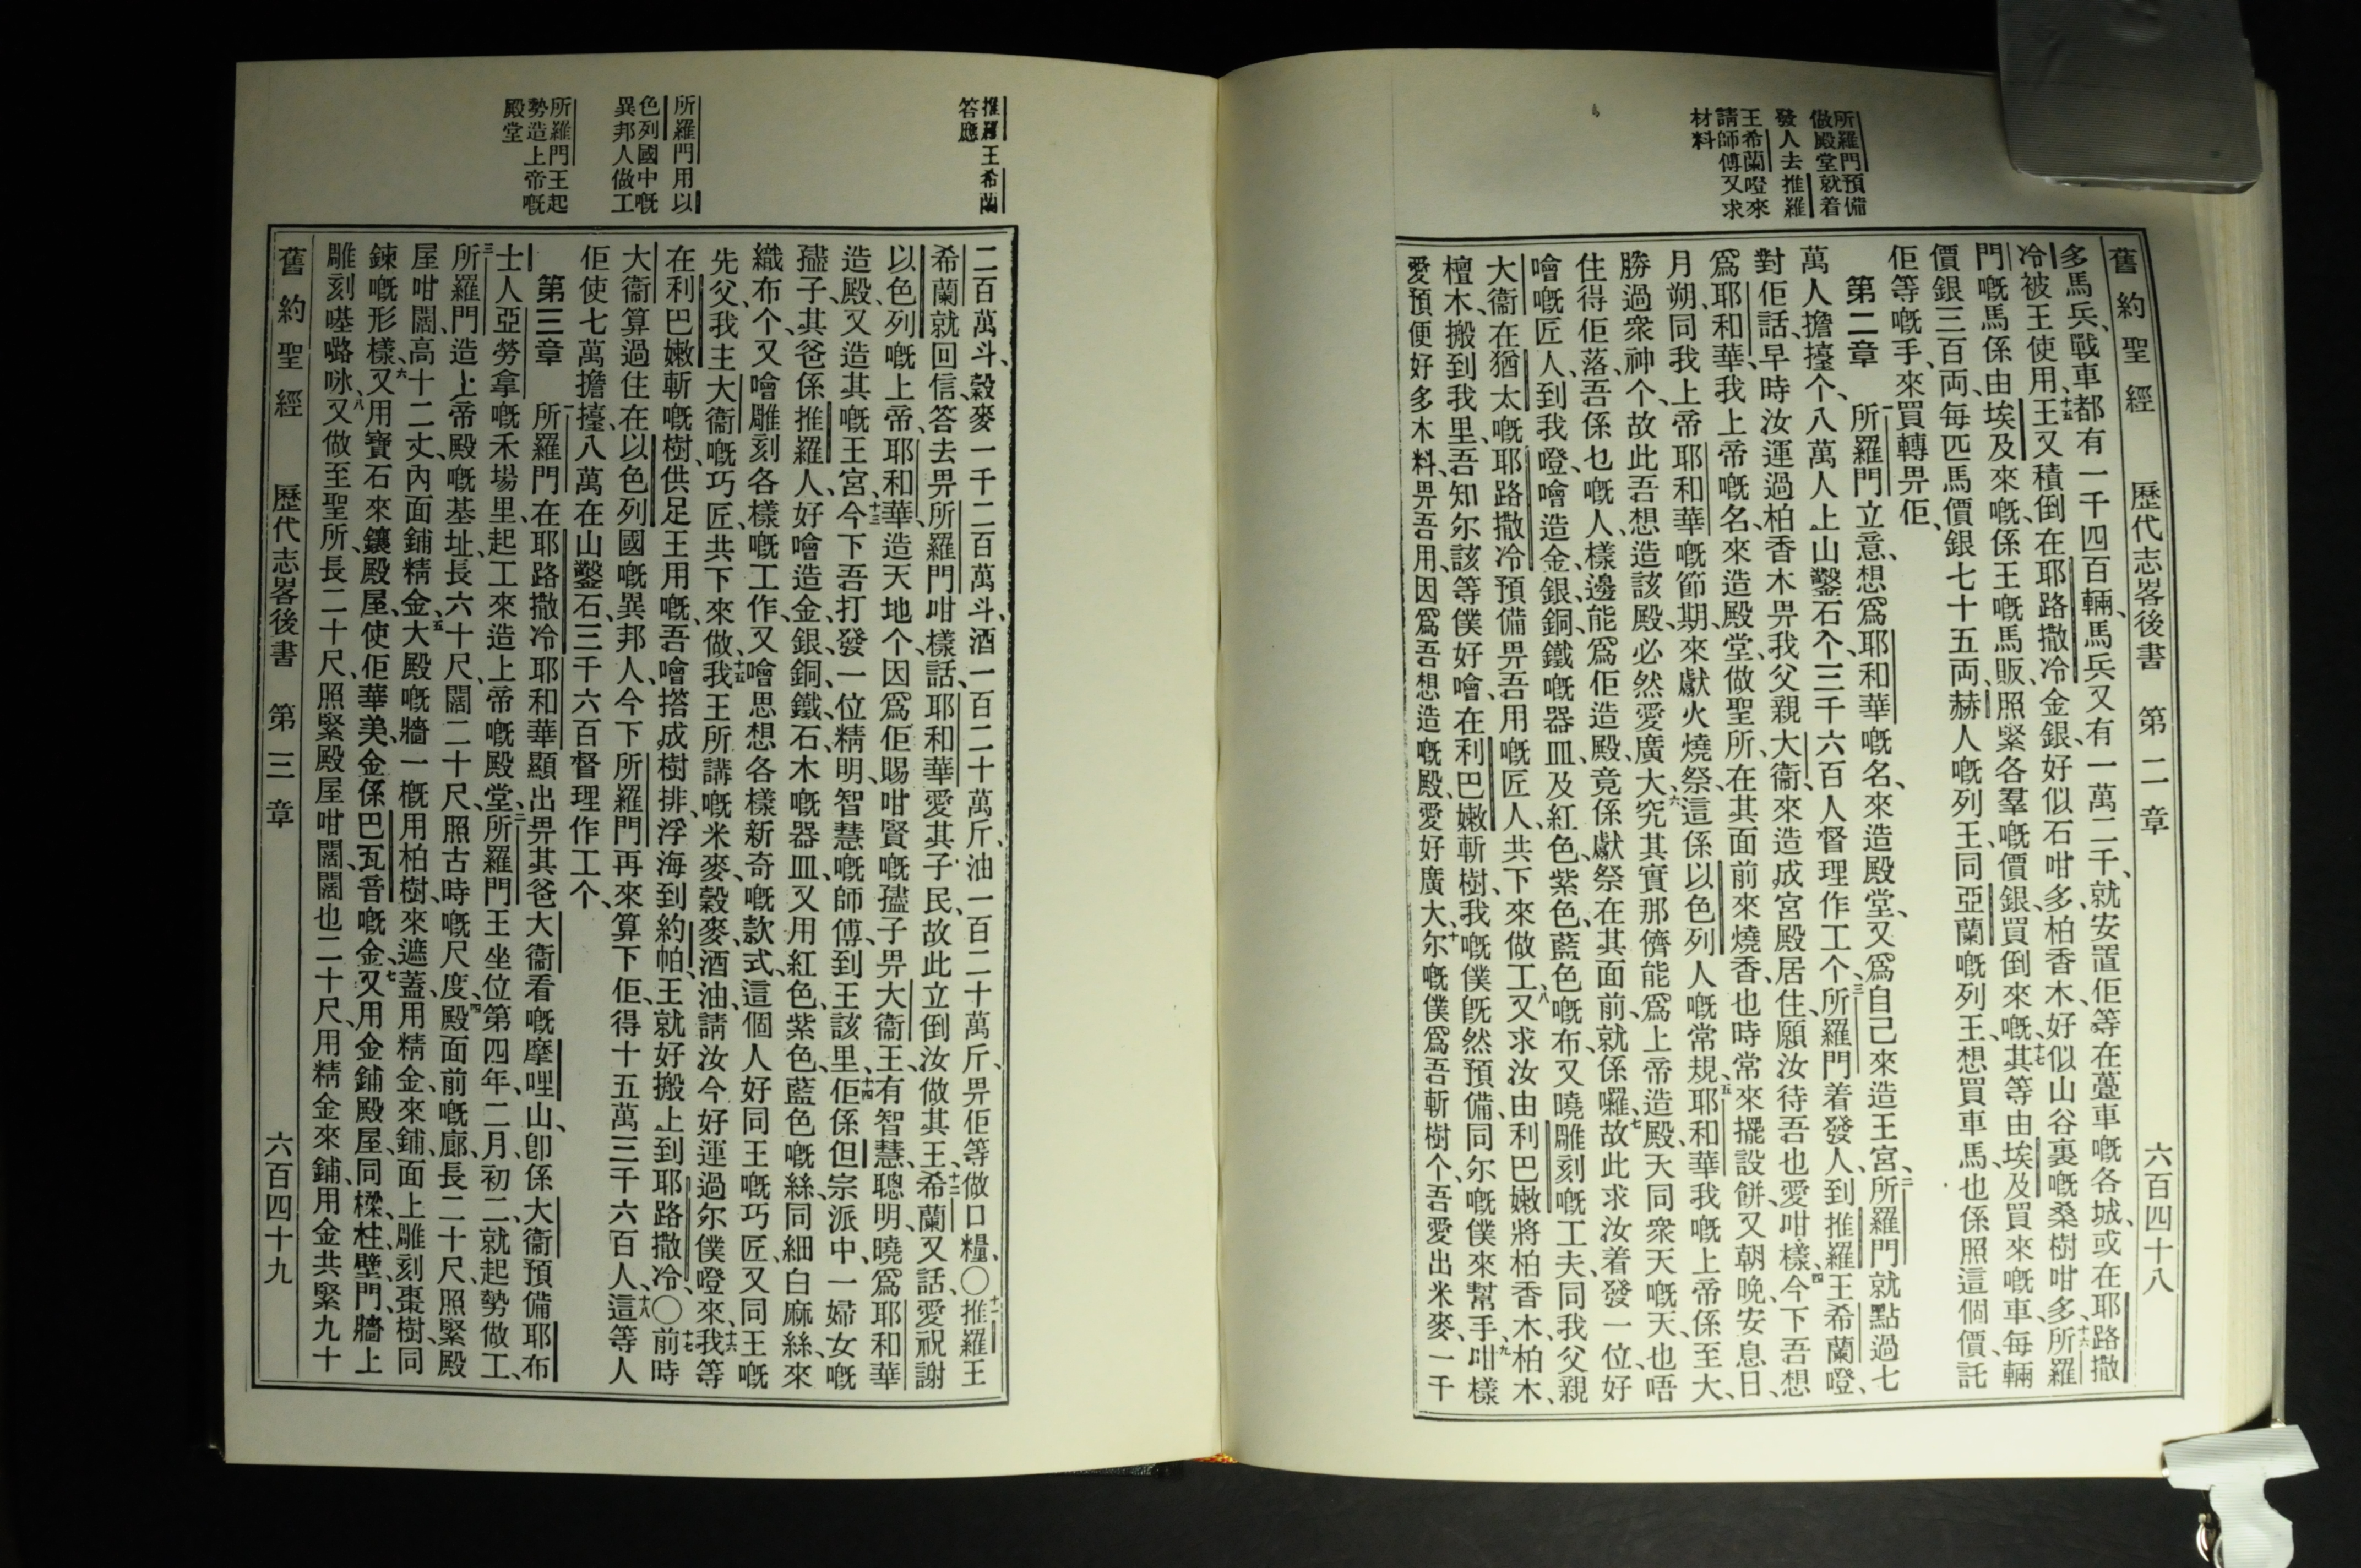 所羅門預備
做殿堂就着
發人去推羅
王希蘭嶝來
請師傅又求
材料
舊約聖經 歷代志畧後書 第二章 六百四十八
多馬兵、戰車都有一千四百輛、馬兵又有一萬二千、就安置佢等在躉車嘅各城、或在耶路撒
冷被王使用、十五王又積倒在耶路撒冷金銀、好似石咁多、柏香木、好似山谷裏嘅桑樹咁多、十六所羅
門嘅馬係由埃及來嘅、係王嘅馬販、照緊各羣嘅價銀、買倒來嘅、十七其等由埃及買來嘅車、每輛
價銀三百両、每匹馬價銀七十五両、赫人嘅列王、同亞蘭嘅列王、想買車馬、也係照這個價、託
佢等嘅手、來買轉畀佢、
第二章 一所羅門立意、想爲耶和華嘅名、來造殿堂、又爲自己來造王宮、二所羅門就點過七
萬人擔擡个、八萬人上山鑿石个、三千六百人督理作工个、三所羅門着發人、到推羅王希蘭嶝、
對佢話、早時汝運過柏香木畀我父親大衞、來造成宮殿居住、願汝待吾也愛咁樣、四今下吾想
爲耶和華、我上帝嘅名、來造殿堂、做聖所、在其面前來燒香、也時常來擺設餅、又朝晚、安息日、
月朔、同我上帝耶和華嘅節期、來獻火燒祭、這係以色列人嘅常規、五耶和華我嘅上帝係至大、
勝過衆神个、故此吾想造該殿、必然愛廣大、六究其實那儕能爲上帝造殿、天同衆天嘅天、也唔
住得佢落、吾係乜嘅人、樣邊能爲佢造殿、竟係獻祭在其面前、就係囉、七故此求汝着發一位好
噲嘅匠人、到我嶝、噲造金、銀、銅、鐵嘅器皿、及紅色、紫色、藍色嘅布、又曉雕刻嘅工夫、同我父親
大衞在猶太嘅耶路撒冷、預備畀吾用嘅匠人、共下來做工、八又求汝由利巴嫩將柏香木、柏木、
檀木、搬到我里、吾知尔該等僕好噲、在利巴嫩斬樹、我嘅僕旣然預備、同尔嘅僕來幫手、九咁樣
愛預便好多木料、畀吾用、因爲吾想造嘅殿、愛好廣大、十尔嘅僕爲吾斬樹个、吾愛出米麥、一千
推羅王希蘭
答應
所羅門用以
色列國中嘅
異邦人做工
所羅門王起
勢造上帝嘅
殿堂
二百萬斗、穀麥一千二百萬斗、酒一百二十萬斤、油一百二十萬斤、畀佢等做口糧、〇十一推羅王
希蘭就回信、答去畀所羅門咁樣話、耶和華愛其子民、故此立倒汝做其王、十二希蘭又話、愛祝謝
以色列嘅上帝、耶和華、造天地个、因爲佢賜咁賢嘅𡥧子畀大衞王、有智慧、聰明、曉爲耶和華
造殿、又造其嘅王宮、十三今下吾打發一位精明、智慧嘅師傅、到王該里、十四佢係但宗派中、一婦女嘅
𡥧子、其爸係推羅人、好噲造金、銀、銅、鐵、石、木嘅器皿、又用紅色、紫色、藍色嘅絲、同細白麻絲、來
織布个、又噲雕刻各樣嘅工作、又噲思想各樣新奇嘅款式、這個人好同王嘅巧匠、又同王嘅
先父、我主大衞嘅巧匠、共下來做、十五我王所講嘅米麥、穀麥、酒、油、請汝今好運過尔僕嶝來、十六我等
在利巴嫩斬嘅樹、供足王用嘅、吾噲搭成樹排、浮海到約帕、王就好搬上到耶路撒冷、〇十七前時
大衞算過住在以色列國嘅異邦人、今下所羅門再來算下佢、得十五萬三千六百人、十八這等人
佢使七萬擔擡、八萬在山鑿石、三千六百督理作工个、
第三章 一所羅門在耶路撒冷耶和華顯出畀其爸大衞看嘅摩哩山、卽係大衞預備耶布
士人亞勞拿嘅禾場里、起工來造上帝嘅殿堂、二所羅門王坐位第四年、二月、初二、就起勢做工、
三所羅門造上帝殿嘅基址、長六十尺、闊二十尺、照古時嘅尺度、四殿面前嘅廊、長二十尺、照緊殿
屋咁闊、高十二丈、內面鋪精金、五大殿嘅牆一概用柏樹、來遮蓋、用精金來鋪、面上雕刻棗樹、同
鍊嘅形樣、六又用寶石來鑲殿屋、使佢華美、金係巴瓦音嘅金、七又用金鋪殿屋、同樑、柱、壁、門、牆上
雕刻𡀔㘔咏、八又做至聖所、長二十尺、照緊殿屋咁闊、闊也二十尺、用精金來鋪、用金共緊九十
舊約聖經 歷代志畧後書 第三章 六百四十九